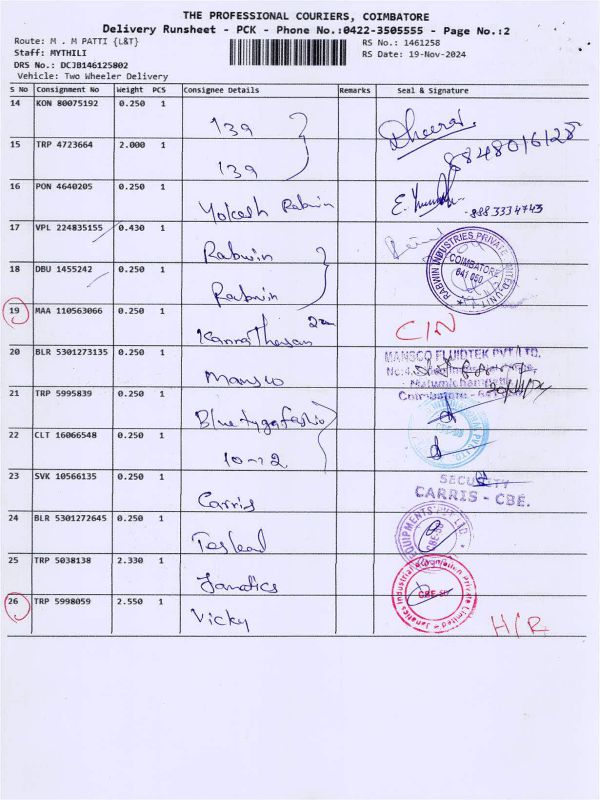 THE PROFESSIONAL COURIERS, COIMBATORE
Delivery Runsheet - PCK - Phone No.:0422-3505555 - Page No.:2
Route: M . M PATTI {L&T}
RS No.: 1461258
Staff: MYTHILI
RS Date: 19-Nov-2024
DRS No.: DCJB146125802
Vehicle: Two Wheeler Delivery
S No Consignment No Weight PCS Consignee Details Remarks Seal & Signature
14 KON 80075192 0.250 1 139
8848016128
15 TRP 4723664 2.000 1 139
16 PON 4640205 0.250 1 Yokesh Rabwin
8883334743
17 VPL 224835155 0.430 1 Rabwin
RABWIN INDUSTRIES PRIVATE LIMITED-UNIT
COIMBATORE
641 050
18 DBU 1455242 0.250 1 Rabwin
19 MAA 110563066 0.250 1 C/N
20 BLR 5301273135 0.250 1 Mansco
MANSCO FLUIDTEK PVT LTD.
Coimbatore
21 TRP 5995839 0.250 1
22 CLT 16066548 0.250 1 10-12
23 SVK 10566135 0.250 1 Carris
SECURITY
CARRIS - CBE.
24 BLR 5301272645 0.250 1
EQUIPMENTS PVT LTD
25 TRP 5038138 2.330 1 Janatics
Janatics Industrial Automation Private Limited
26 TRP 5998059 2.550 1 Vicky H/R